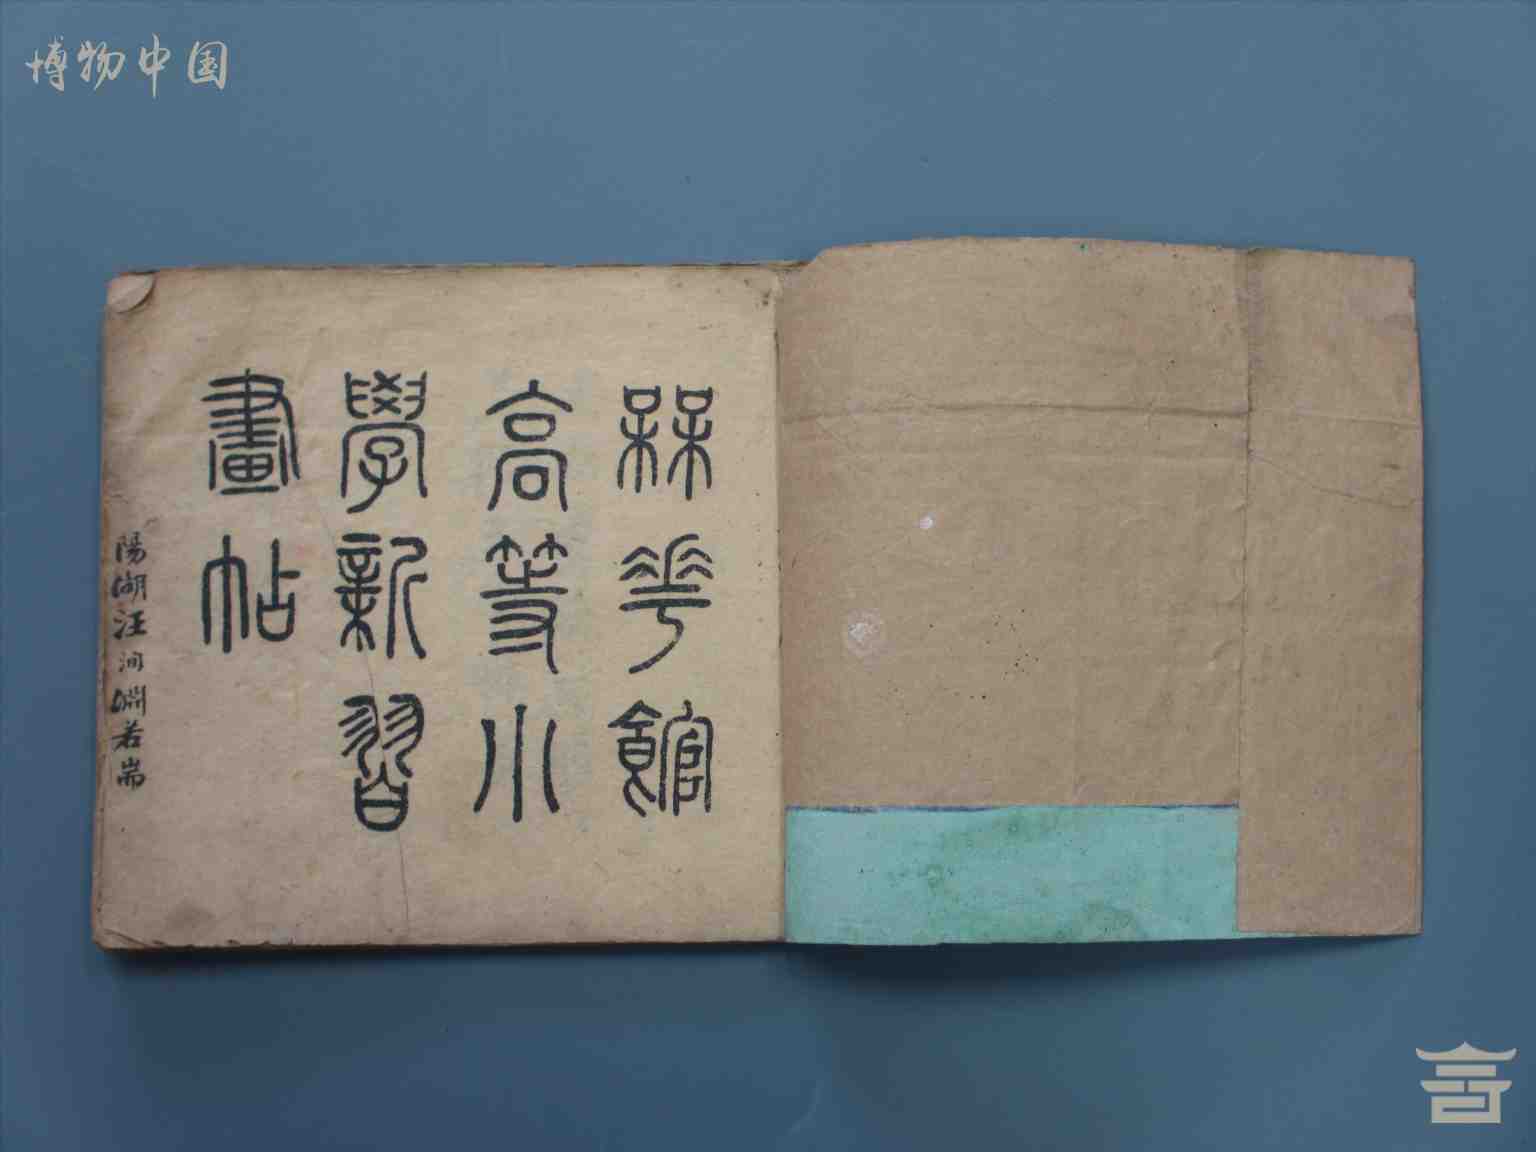 博物中国
槑花館
高等小
學新習
畫帖
陽湖汪洵淵若耑